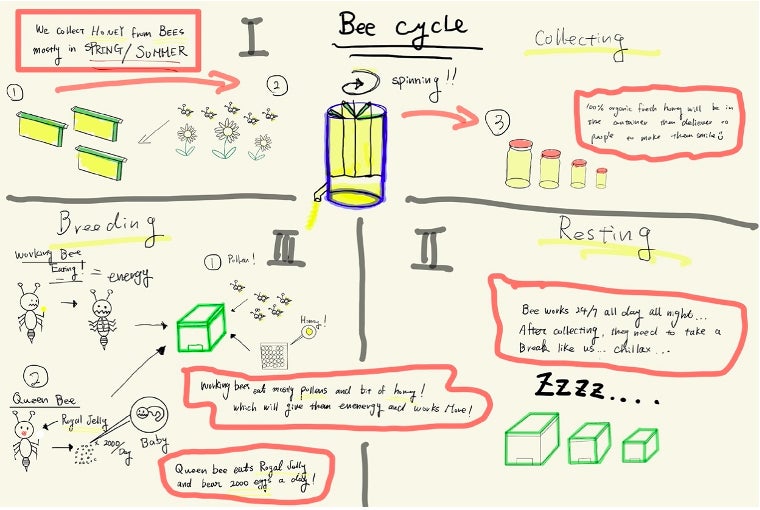 Bee cycle
I
We collect HONEY from BEES
mostly in SPRING/SUMMER
1
2
spinning!!
Collecting
3
100% organic fresh honey will be in
the container then deliever to
people to make them smile
II
Resting
Bee works 24/7 all day all night...
After collecting, they need to take a
Break like us... chillax...
Zzzz....
III
Breeding
Working Bee
Eating! = energy
1 Pollen!
Honey!
Working bees eat mostly pollens and bit of honey!
which will give them enenergy and works More!
2
Queen Bee
Royal Jelly
2000/Day
Baby
Queen bee eats Royal Jelly
and bear 2000 eggs a day!